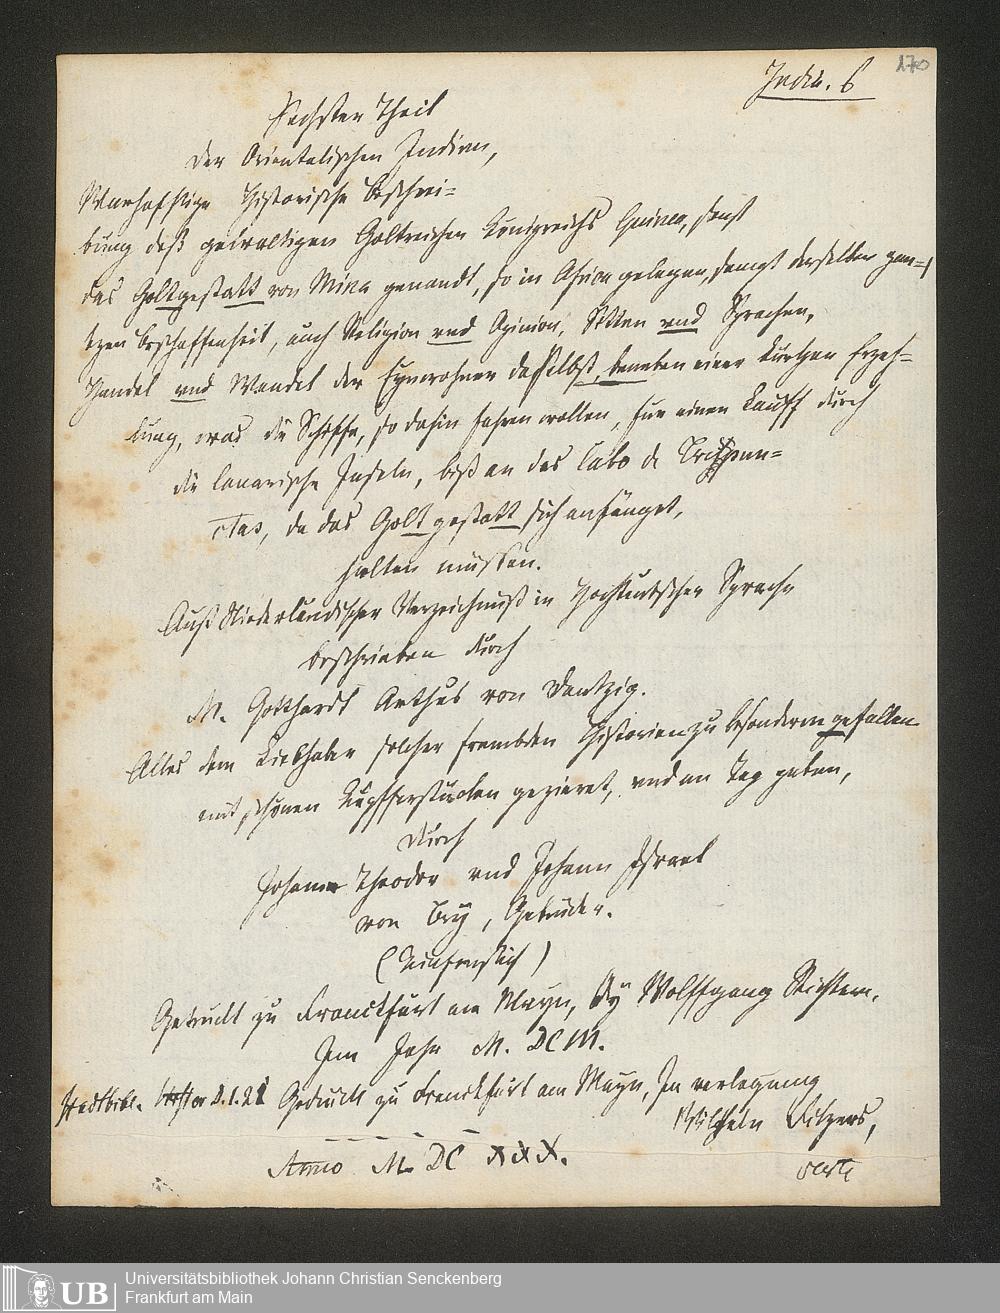 170
India. 6
Sechster Theil
der Orientalischen Indien,
Warhafftige Historische Beschrei=
bung deß gewaltigen Goltreichen Königreichs Guinea, sonst
das Goltgestatt von Mina genandt, so in Africa gelegen, sampt derselben gan=
tzen Beschaffenheit, auch Religion vnd Opinion, Sitten vnd Sprachen,
Handel vnd Wandel der Eynwohner daselbst, beneben einer kurtzen Erzeh=
lung, was die Schiffe, so dahin fahren wollen, für einen Lauff durch
die Canarische Inseln, biß an das Cabo de Trespun=
ctas, da das Golt gestatt sich anfänget,
halten müssen.
Auß Niederländischer Verzeichnuß in Hochteutscher Sprache
beschrieben durch
M. Gotthardt Arthus von Dantzig.
Alles dem Liebhaber solcher frembden Historien zu besonderm gefallen
mit schönen Kupfferstücken gezieret, vnd an Tag geben,
durch
Johann Theodor vnd Johann Israel
von Bry, Gebrüder.
Getruckt zu Franckfurt am Mayn, by Wolffgang Richtern,
Im Jahr M. DCIII.
Stadtbibl. D.1.21 Gedruckt zu Franckfurt am Mayn, In verlegung
Wilhelm Fitzers,
Anno M. DC XXX.
verte
UB
Universitätsbibliothek Johann Christian Senckenberg
Frankfurt am Main